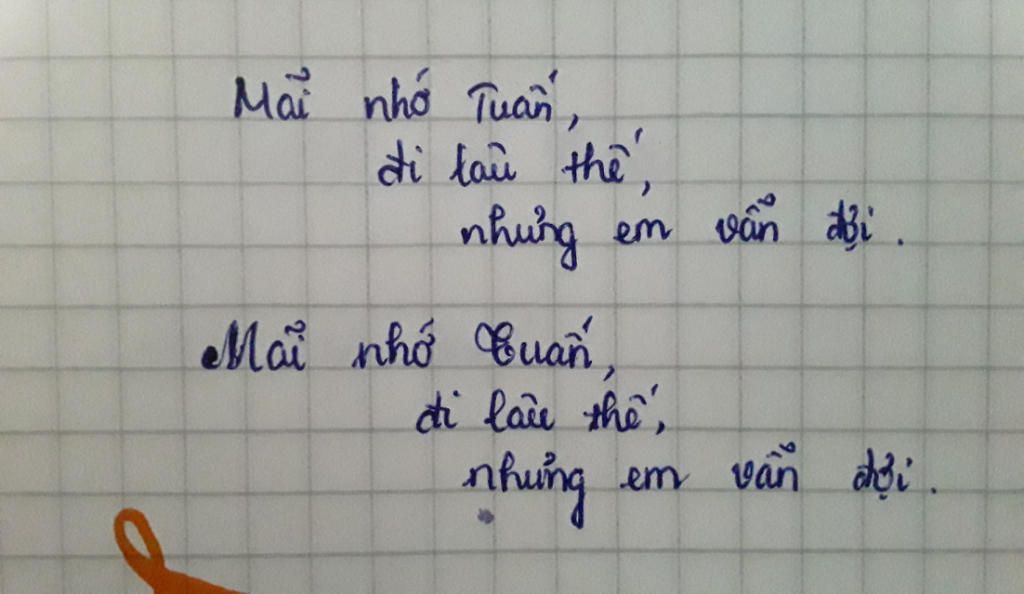 Mãi nhớ Tuấn,
đi lâu thế,
nhưng em vẫn đợi.
Mãi nhớ Tuấn,
đi lâu thế,
nhưng em vẫn đợi.